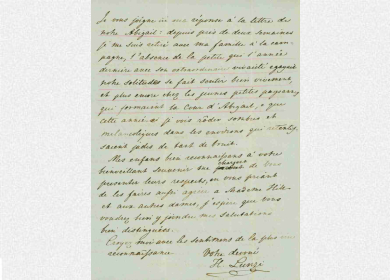 Je vous joigne ici une réponse à la lettre de
notre Abigail: depuis près de deux semaines
je me suis retiré avec ma famille à la cam-
pagne, l'absence de la petite que l'année
dernière avec son extraordinaire vivacité égayait
notre solitude se fait sentir bien vivement
et plus encore chez les jeunes petites paysannes
qui formaient la Cour d'Abigail, e que
cette année je vois rôder sombres et
melancoliques dans les environs qui retentis-
saient jadis de tant de bruit.
Mes enfans bien reconnaissans à votre
bienveillant souvenir me chargent de Vous
presenter leurs respects, en vous priant
de les faires aussi agréer a Madame
et aux autres dames, j'espère que vous
voudrez bien y joindre mes salutations
bien distinguées.
Croyez moi avec les sentimens de la plus vive
reconnaissance
Votre devoué